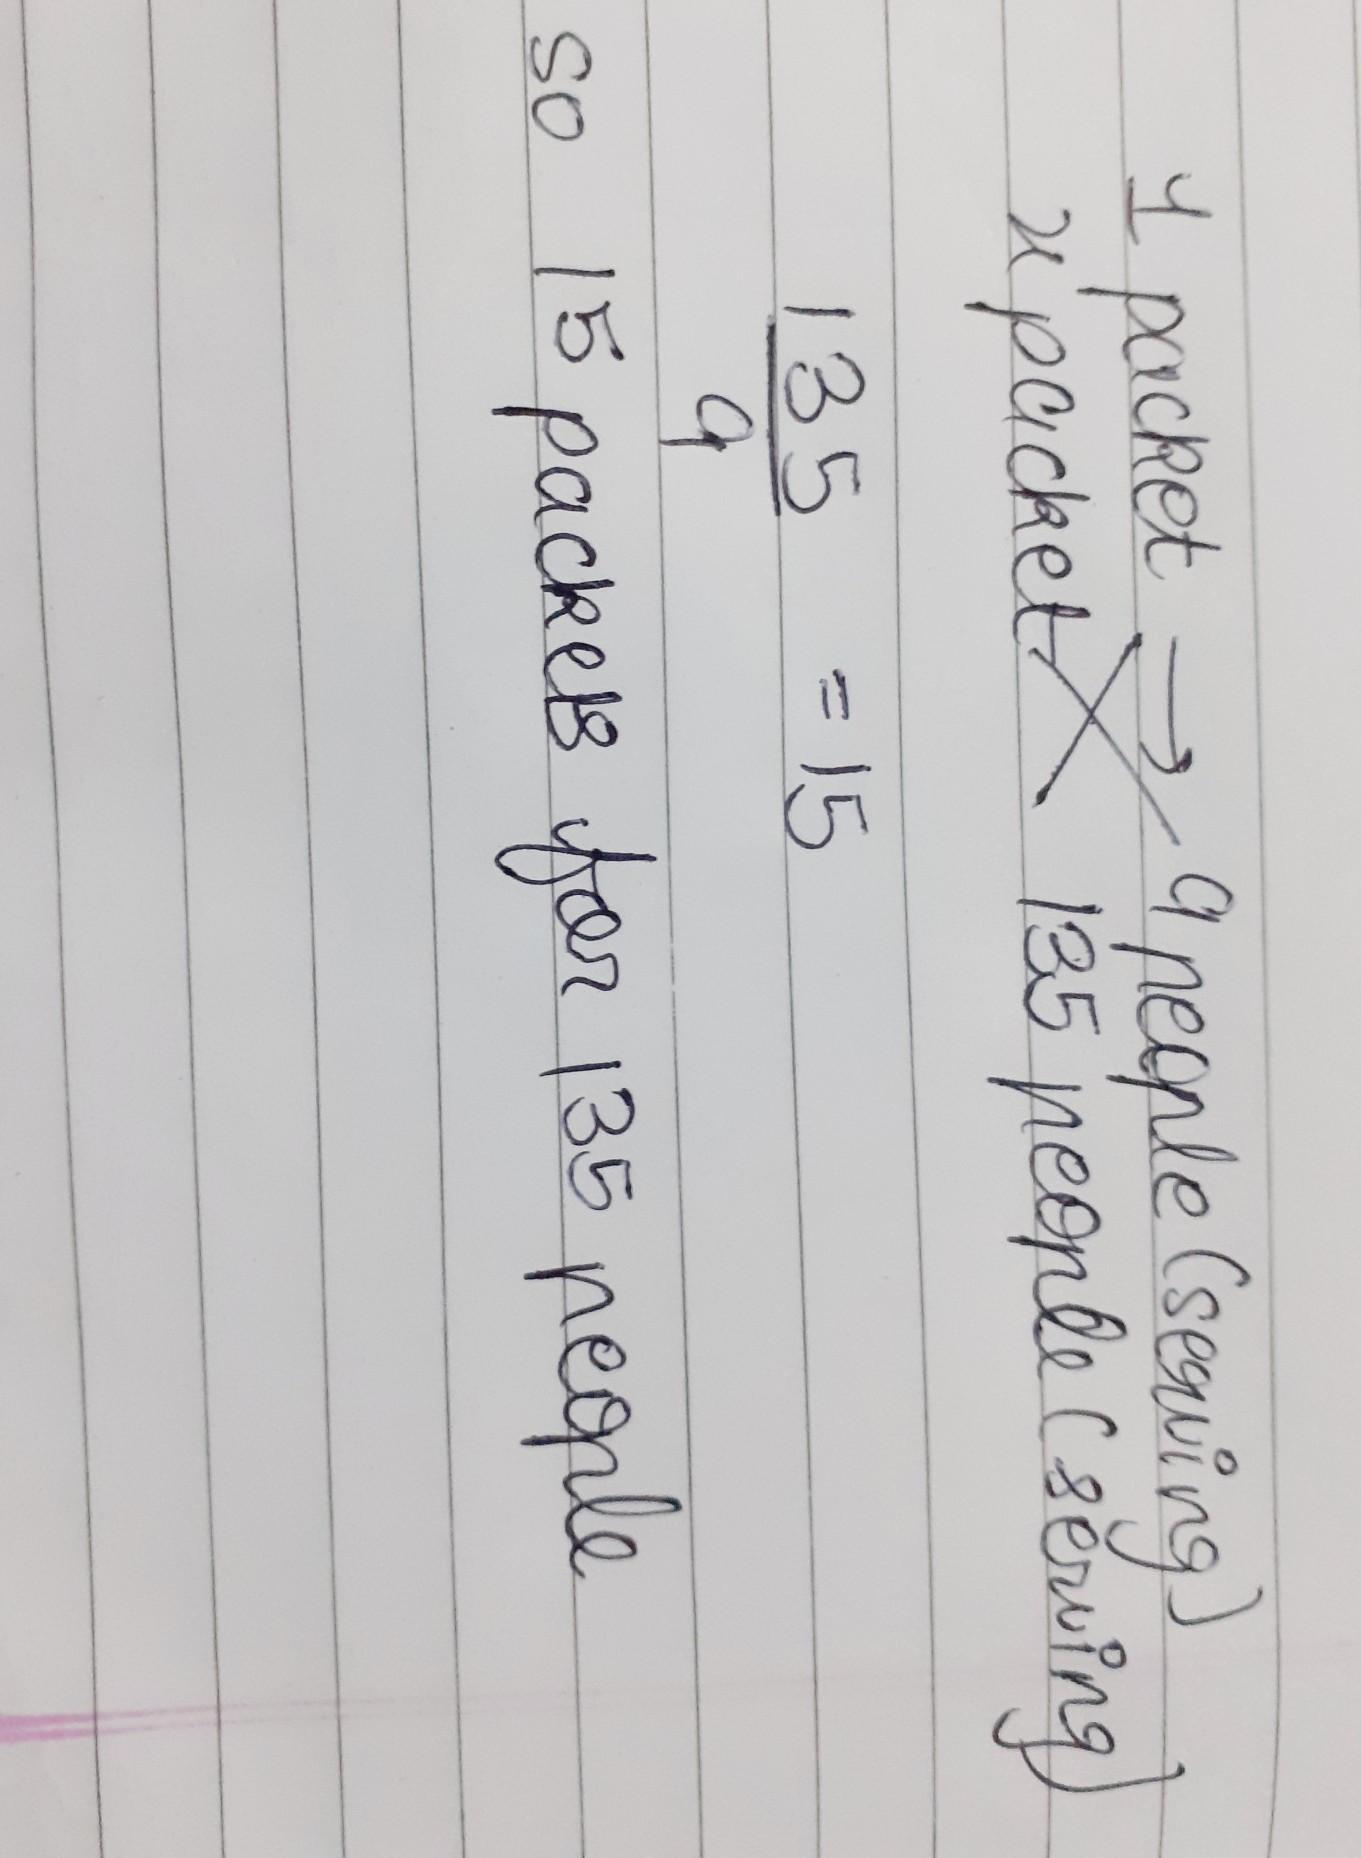 1 packet → 9 people (serving)
x packet 135 people (serving)
135 = 15
9
so 15 packets for 135 people